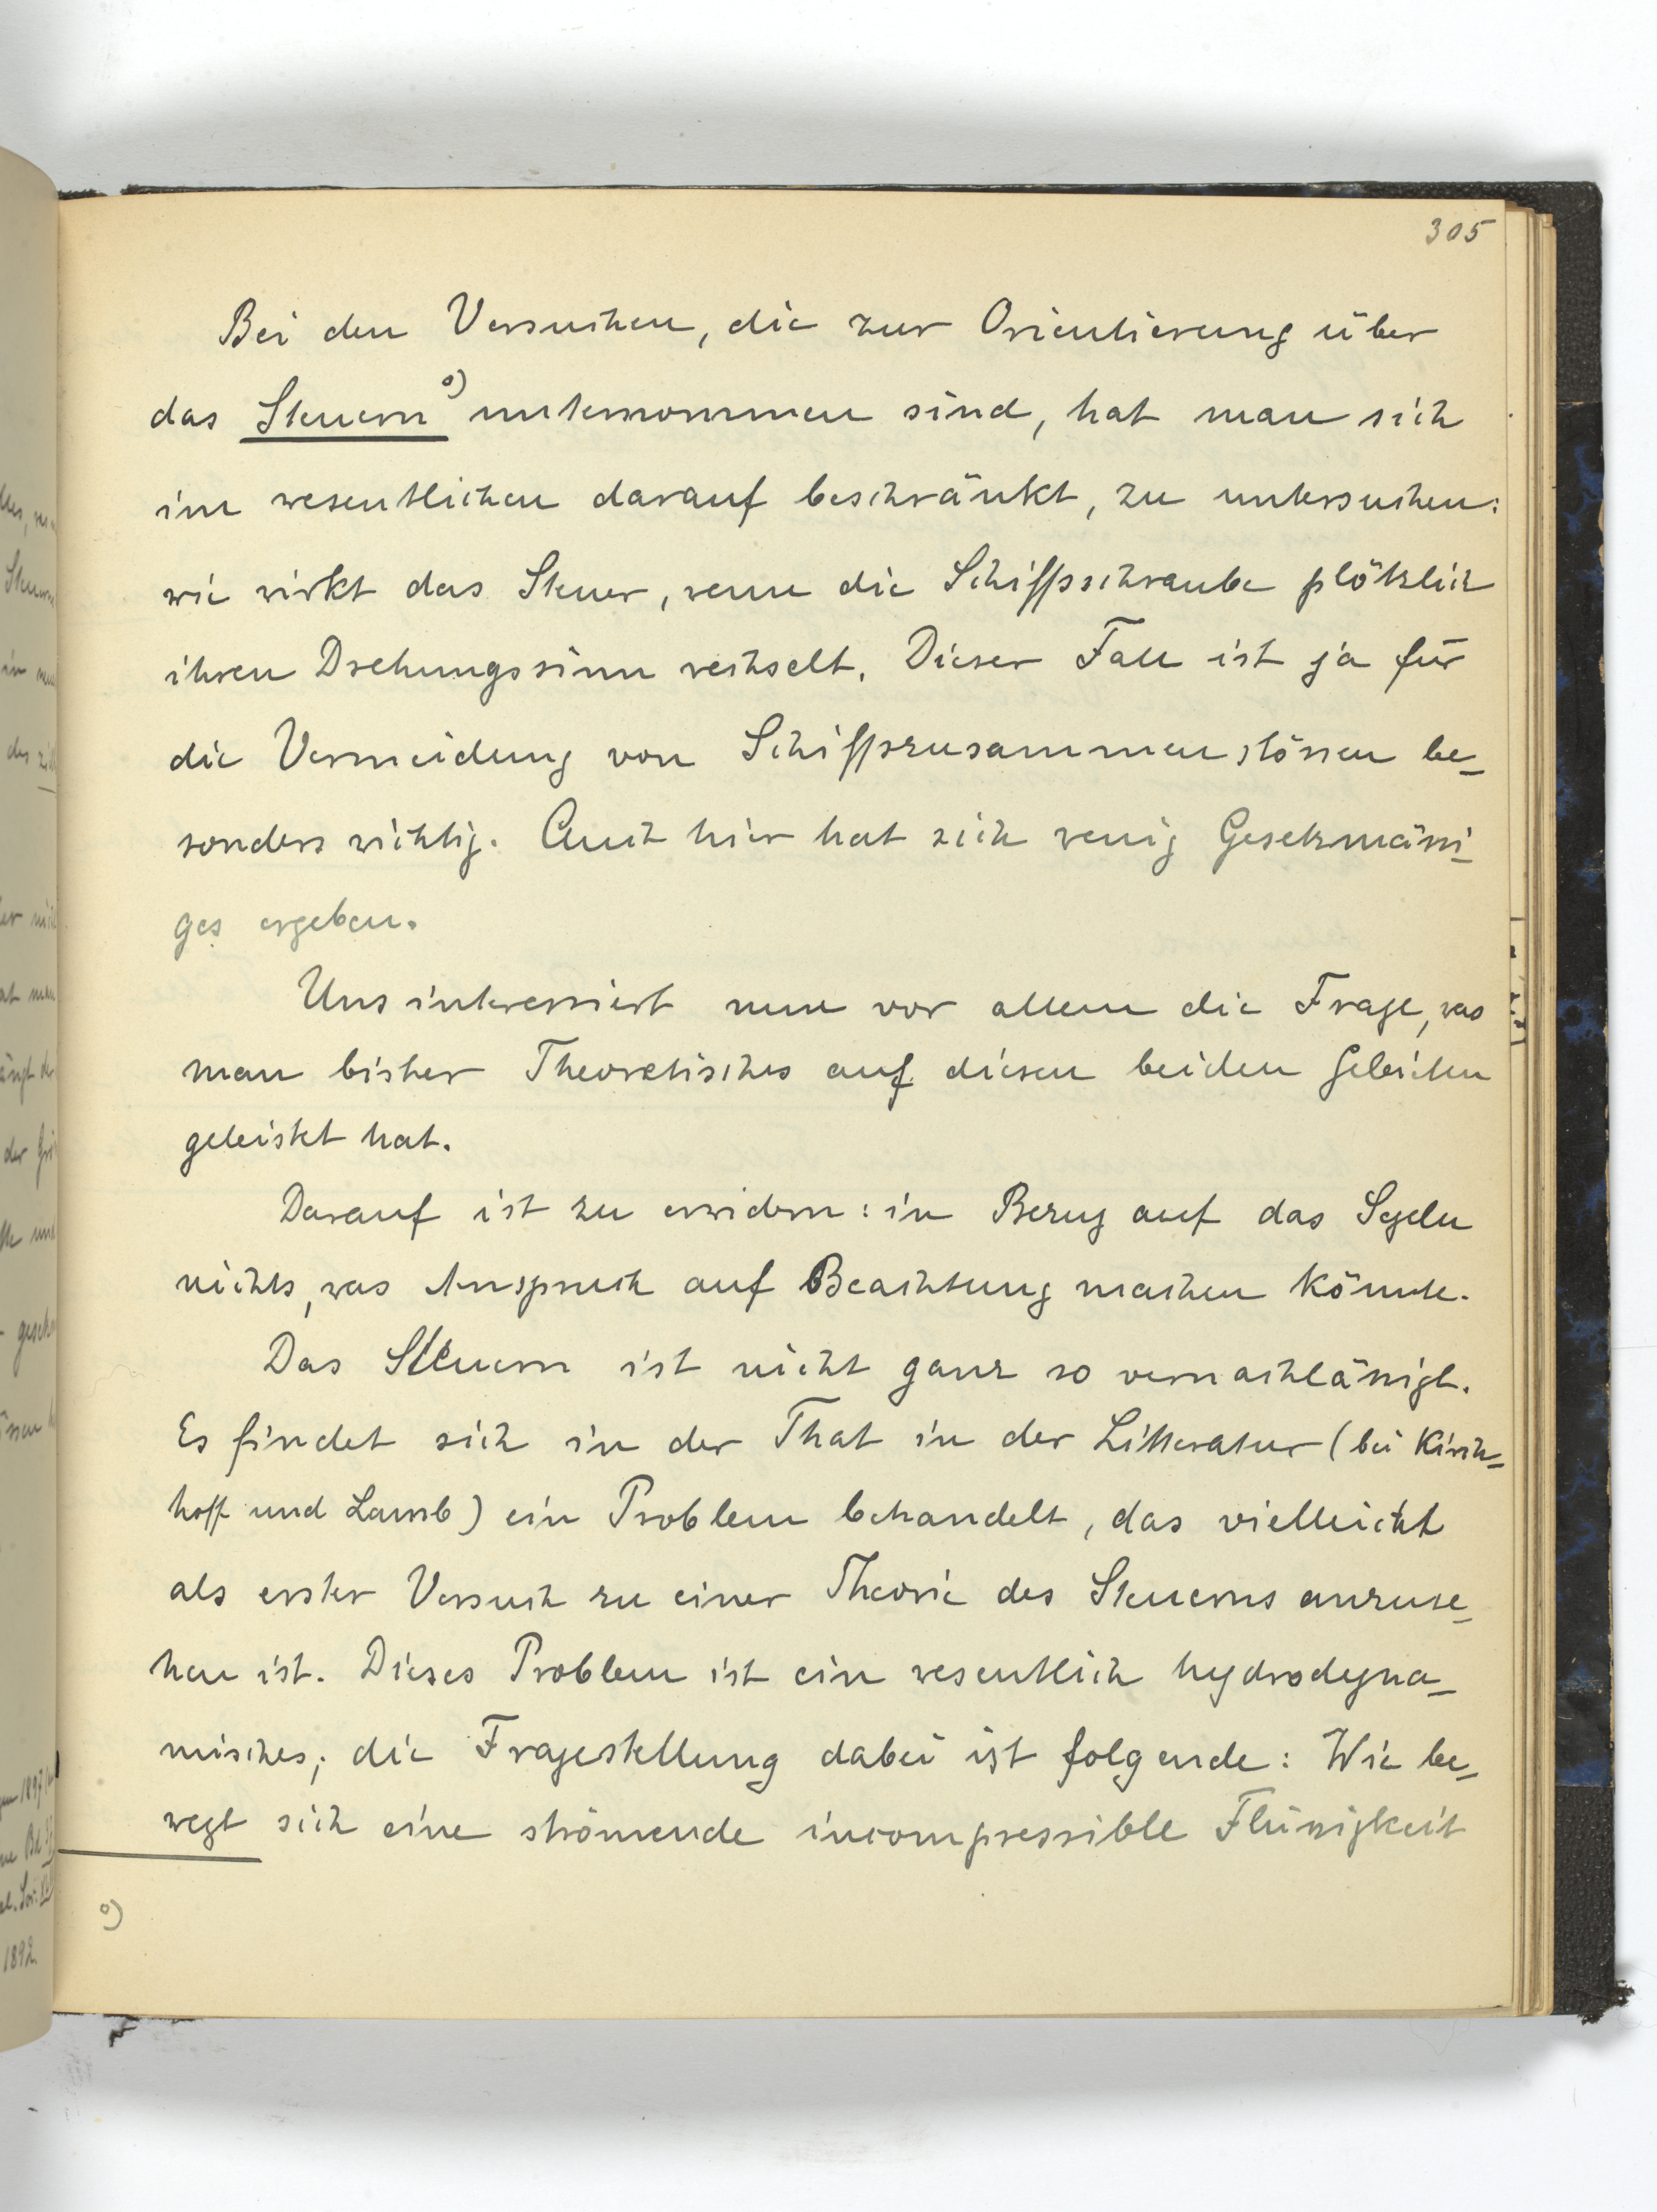 305
Bei den Versuchen, die zur Orientierung über
das Steuern⁰⁾ unternommen sind, hat man sich
im wesentlichen darauf beschränkt, zu untersuchen:
wie wirkt das Steuer, wenn die Schiffsschraube plötzlich
ihren Drehungssinn wechselt. Dieser Fall ist ja für
die Vermeidung von Schiffszusammenstössen be-
sonders wichtig. Auch hier hat sich wenig Gesetzmässi-
ges ergeben.
Uns interessiert nun vor allem die Frage, was
man bisher Theoretisches auf diesen beiden Gebieten
geleistet hat.
Darauf ist zu erwidern: in Bezug auf das Segeln
nichts, was Anspruch auf Beachtung machen könnte.
Das Steuern ist nicht ganz so vernachlässigt.
Es findet sich in der That in der Litteratur (bei Kirch-
hoff und Lamb) ein Problem behandelt, das vielleicht
als erster Versuch zu einer Theorie des Steuerns anzuse-
hen ist. Dieses Problem ist ein wesentlich hydrodyna-
misches; die Fragestellung dabei ist folgende: Wie be-
wegt sich eine strömende incompressible Flüssigkeit
⁰⁾